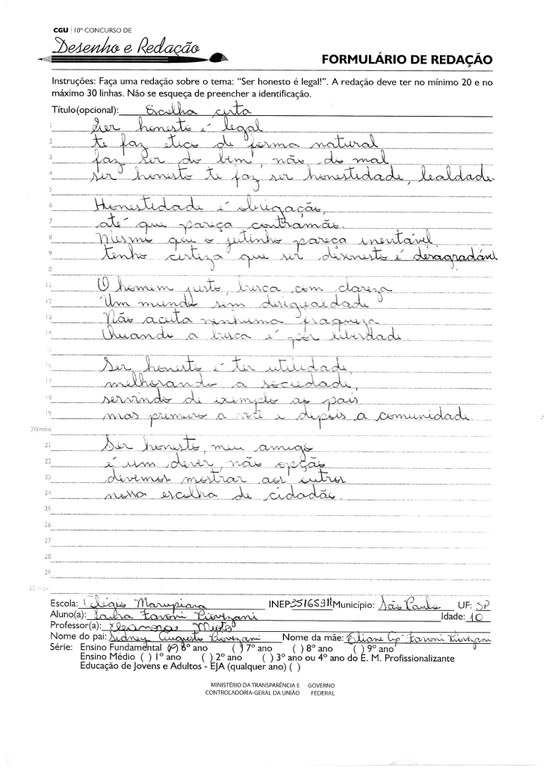 CGU | 10º CONCURSO DE
Desenho e Redação
FORMULÁRIO DE REDAÇÃO
Instruções: Faça uma redação sobre o tema: "Ser honesto é legal!". A redação deve ter no mínimo 20 e no
máximo 30 linhas. Não se esqueça de preencher a identificação.
Título(opcional): Escolha certa
Ser honesto é legal
te faz ético de forma natural
faz ser do bem, não do mal
ser honesto te faz ser honestidade, lealdade.
Honestidade é obrigação,
até que pareça contramão.
Mesmo que o jeitinho pareça inevitável,
tenho certeza que ser desonesto é desagradável
O homem justo, busca com clareza
Um mundo sem desigualdade
Não aceita nenhuma fraqueza
Quando a busca é por liberdade.
Ser honesto é ter utilidade,
melhorando a sociedade,
servindo de exemplo ao país
mas primeiro a você e depois a comunidade
Ser honesto, meu amigo
é um dever, não opção
devemos mostrar aos outros
nossa escolha de cidadão.
Escola: Colégio INEP: Município: São Paulo UF: SP
Aluno(a): Favoni Idade: 10
Professor(a): Eleanora
Nome do pai: Sidney Augusto Nome da mãe: Eliane Ap. Favoni
Série: Ensino Fundamental (x) 6º ano ( ) 7º ano ( ) 8º ano ( ) 9º ano
Ensino Médio ( ) 1º ano ( ) 2º ano ( ) 3º ano ou 4º ano do E. M. Profissionalizante
Educação de Jovens e Adultos - EJA (qualquer ano) ( )
MINISTÉRIO DA TRANSPARÊNCIA E GOVERNO
CONTROLADORIA-GERAL DA UNIÃO FEDERAL